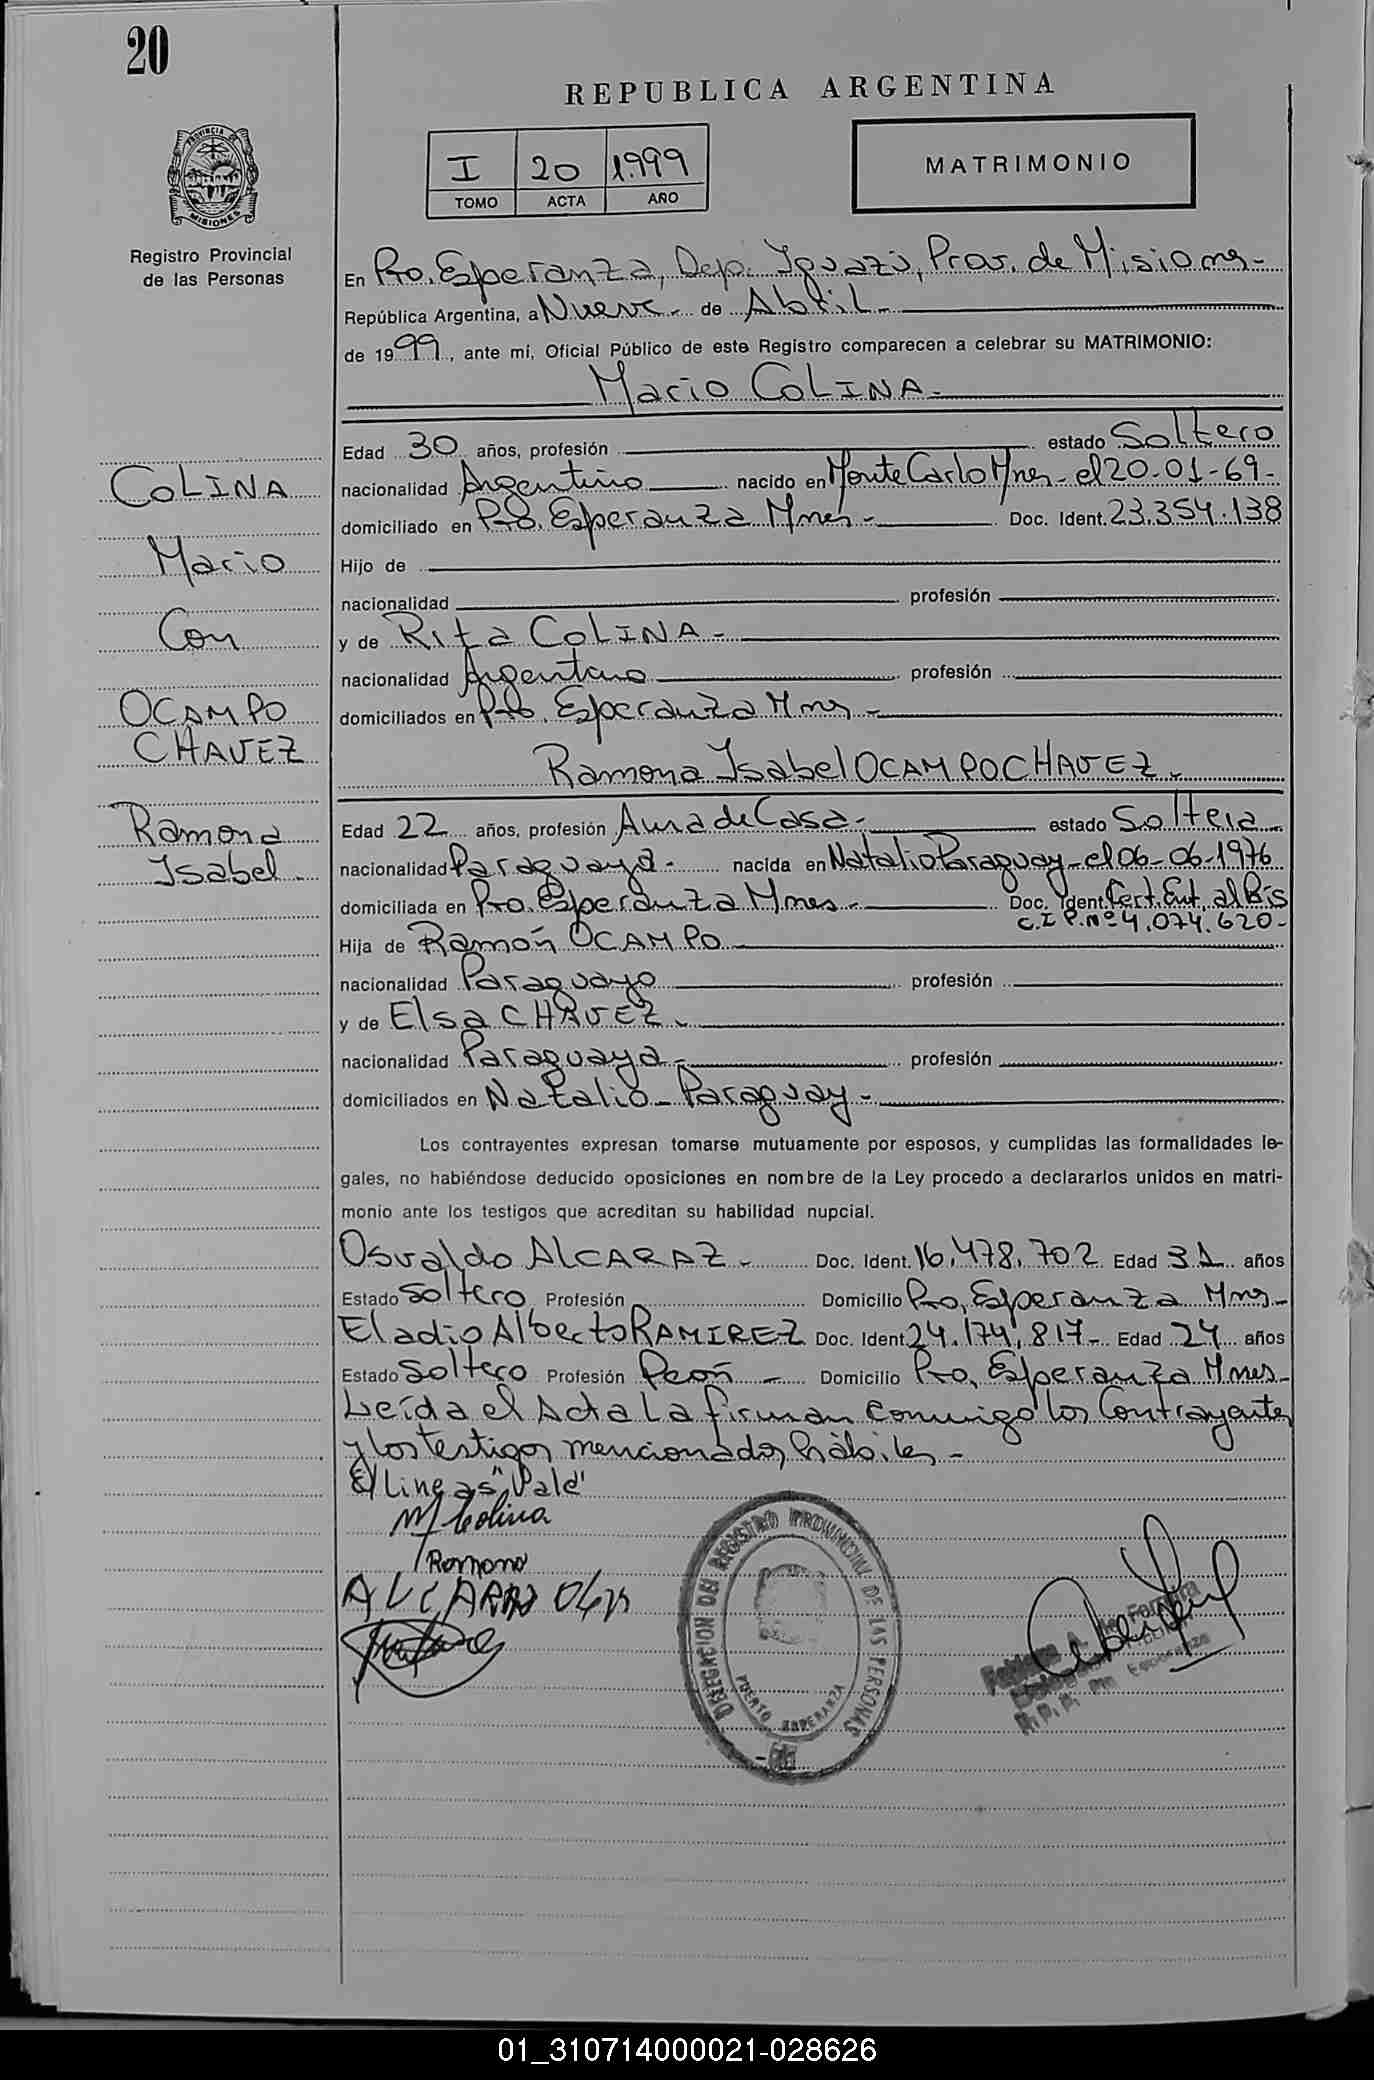 20
REPUBLICA ARGENTINA
I 20 1.999
TOMO ACTA AÑO
MATRIMONIO
PROVINCIA DE
MISIONES
Registro Provincial
de las Personas
En Pto. Esperanza, Dep. Iguazú, Prov. de Misiones-
República Argentina, a Nueve- de Abril-
de 1999, ante mí, Oficial Público de este Registro comparecen a celebrar su MATRIMONIO:
Mario COLINA-
Edad 30 años, profesión estado Soltero
nacionalidad Argentino nacido en Monte Carlo Mnes- el 20-01-69-
domiciliado en Pto. Esperanza Mnes- Doc. Ident. 23.354.138
Hijo de
nacionalidad profesión
y de Rita COLINA-
nacionalidad Argentina profesión
domiciliados en Pto. Esperanza Mnes-
COLINA
Mario
Con
OCAMPO
CHAVEZ
Ramona
Isabel.
Ramona Isabel OCAMPO CHAVEZ.
Edad 22 años, profesión Ama de Casa- estado Soltera
nacionalidad Paraguaya- nacida en Natalio Paraguay- el 06-06-1976
domiciliada en Pto. Esperanza Mnes- Doc. Ident. Cert. Ent. al Pís
C.I P. Nº 4.074.620-
Hija de Ramón OCAMPO
nacionalidad Paraguayo profesión
y de Elsa CHAVEZ.
nacionalidad Paraguaya- profesión
domiciliados en Natalio- Paraguay-
Los contrayentes expresan tomarse mutuamente por esposos, y cumplidas las formalidades le-
gales, no habiéndose deducido oposiciones en nombre de la Ley procedo a declararlos unidos en matri-
monio ante los testigos que acreditan su habilidad nupcial.
Osvaldo ALCARAZ- Doc. Ident. 16.478.702 Edad 31 años
Estado Soltero Profesión Domicilio Pto. Esperanza Mnes-
Eladio Alberto RAMIREZ Doc. Ident. 24.174.817- Edad 24 años
Estado Soltero Profesión Peón - Domicilio Pto. Esperanza Mnes-
Leída el Acta La firman conmigo los Contrayentes
y los testigos mencionados, hábiles-
E/Lineas "Vale"
M Colina
Ramona
DELEGACION DEL REGISTRO PROVINCIAL DE LAS PERSONAS
PUERTO ESPERANZA
01_310714000021-028626